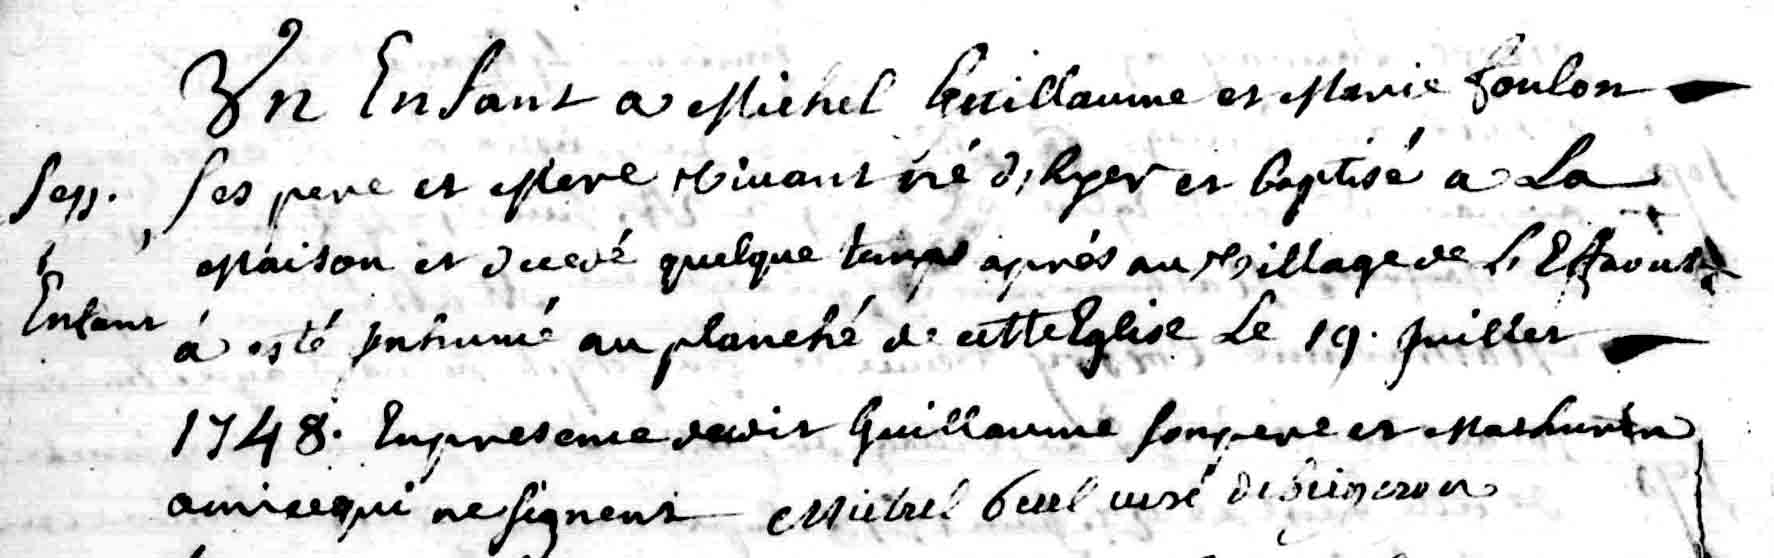 Un Enfant a Michel Guillaume et Marie Foulon
Sep. ses pere et Mere Vivant né d'hyer et baptisé a La
Maison et decedé quelque temps aprés au Village de
Enfant á esté inhumé au planché de cette Eglise Le 19. Juillet
1748. En presence dudit Guillaume son pere et Mathurin
qui ne signent Michel curé de